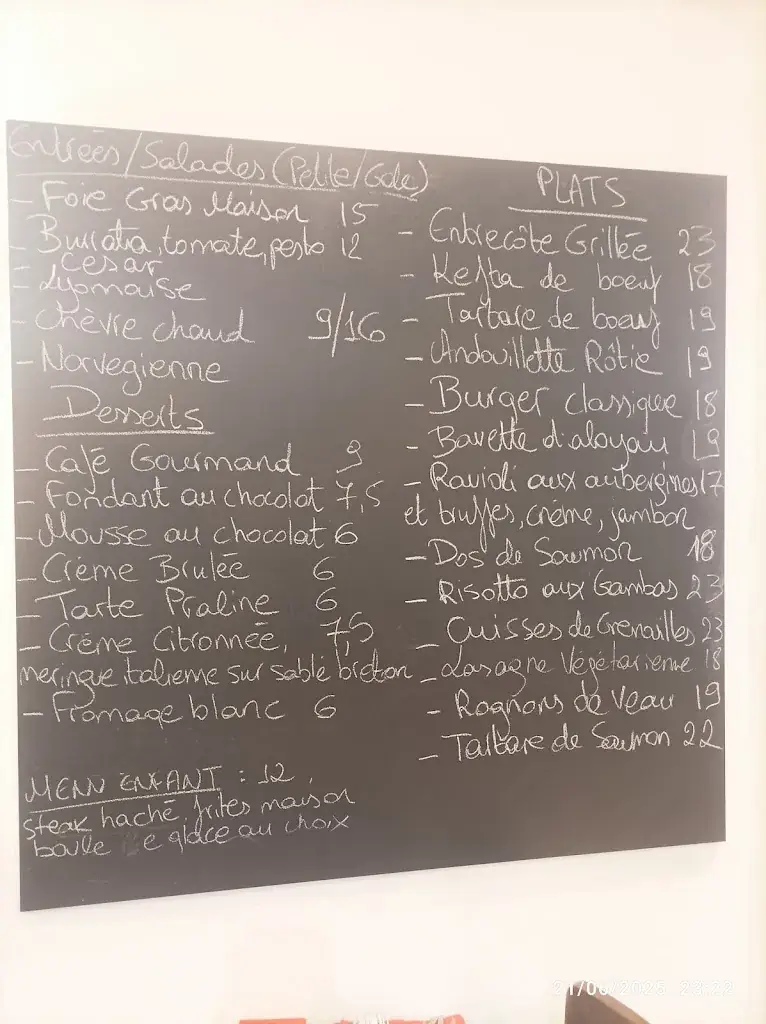 Entrées/Salades (Petite/Gde)
- Foie Gras Maison 15
- Burrata, tomate, pesto 12
- Cesar
- Lyonnaise
- Chèvre chaud 9/16
- Norvegienne
Desserts
- Café Gourmand 9
- Fondant au chocolat 7,5
- Mousse au chocolat 6
- Crème Brulée 6
- Tarte Praline 6
- Crème Citronnée, 7,5
meringue italienne sur sablé breton
- Fromage blanc 6
MENU ENFANT : 12,
steak haché, frites maison
boule e glace au choix
PLATS
- Entrecôte Grillée 23
- Kefta de boeuf 18
- Tartare de boeuf 19
- Andouillette Rôtie 19
- Burger classique 18
- Bavette d'aloyau 19
- Ravioli aux aubergines 17
et truffes, crème, jambon
- Dos de Saumon 18
- Risotto aux Gambas 23
- Cuisses de Grenailles 23
- Lasagne Végétarienne 18
- Rognons de Veau 19
- Tartare de Saumon 22